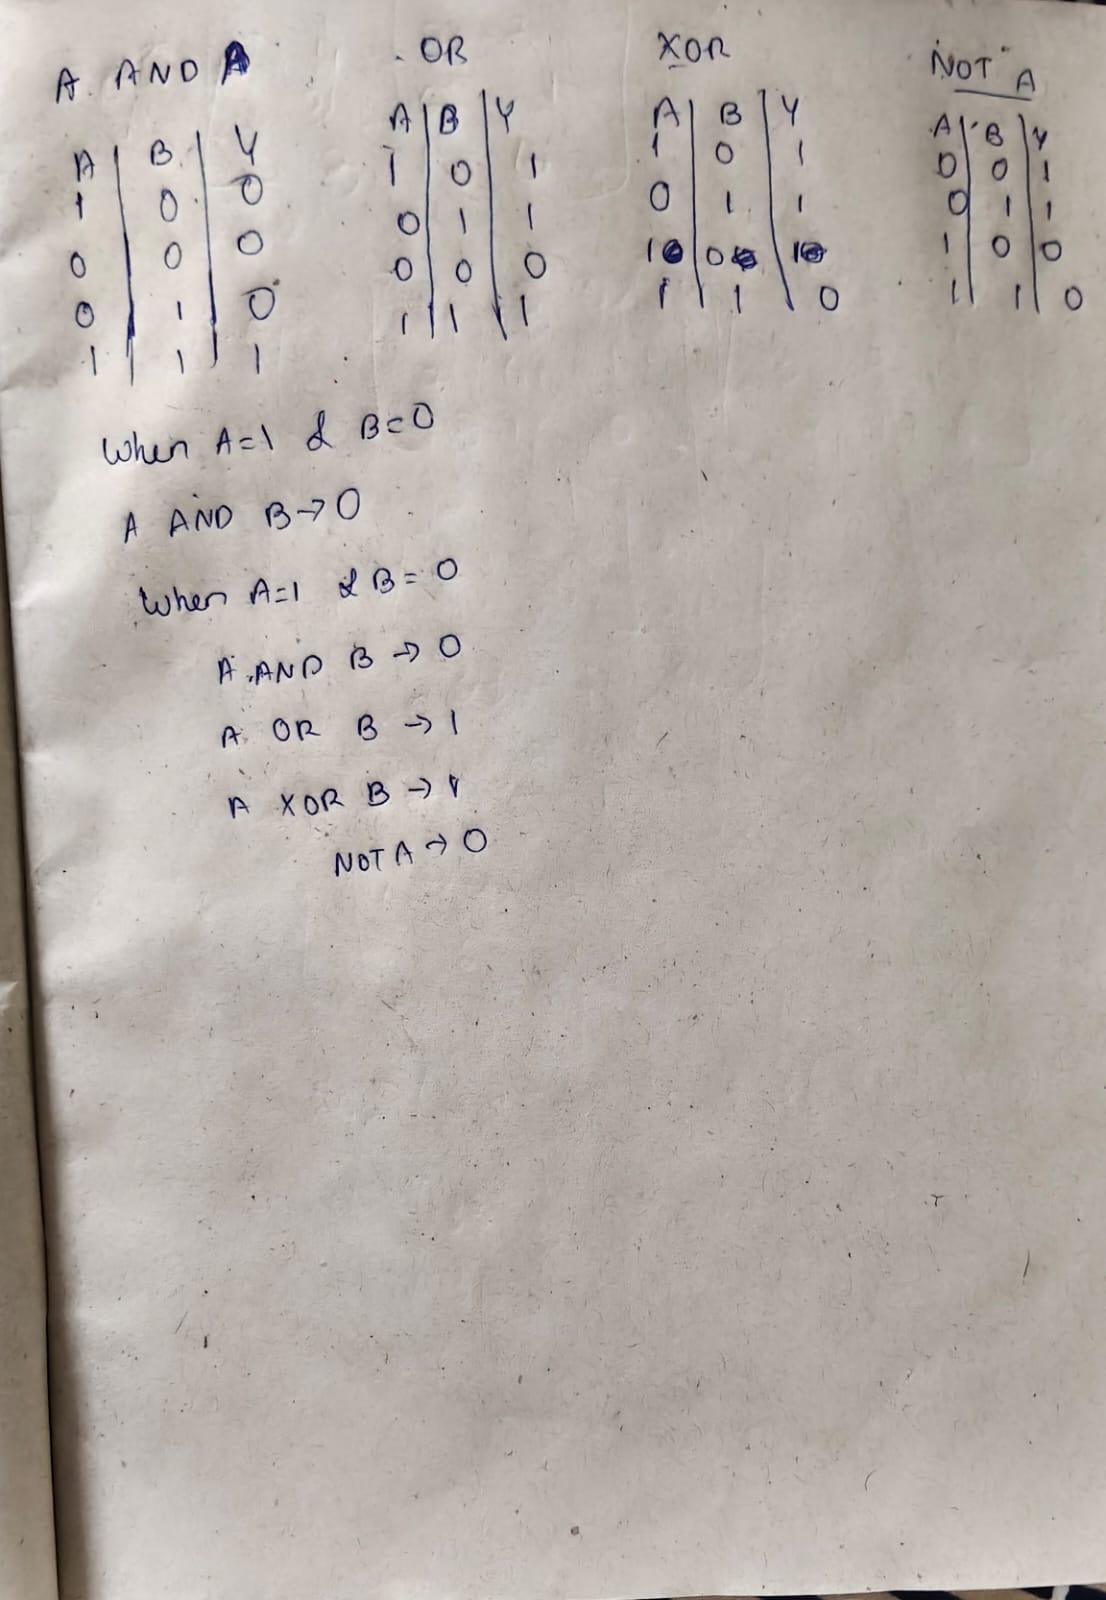 A AND A
A B Y
1 0 0
0 0 0
0 1 0
1 1 1
OR
A B Y
1 0 1
0 1 1
0 0 0
1 1 1
XOR
A B Y
1 0 1
0 1 1
1 0 1
1 1 0
NOT A
A B Y
0 0 1
0 1 1
1 0 0
1 1 0
When A=1 & B=0
A AND B→0
When A=1 & B=0
A AND B → 0
A OR B → 1
A XOR B → 1
NOT A → 0